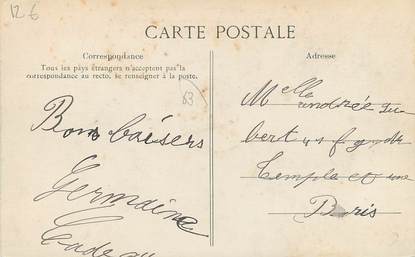 12 €
CARTE POSTALE
Correspondance
Tous les pays étrangers n'acceptent pas la
correspondance au recto, se renseigner à la poste.
63
Bons baisers
Germaine
Adresse
Melle
bert
Temple et une
Paris